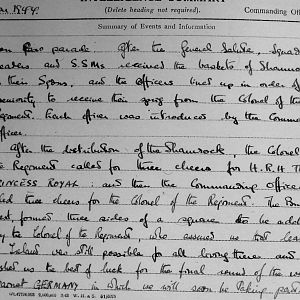 (Delete heading not required).
Commanding Off
Summary of Events and Information
parade. After the General Salute, Squad
and SSMs received the baskets of Shamro
their Sqns, and the Officers lined up in order of
seniority to receive their sprig from the Colonel of the
Regiment. Each officer was introduced by the Comma
fficer.
After the distribution of the Shamrock, the Colonel
Regiment called for three cheers for H.R.H. T
RINCESS ROYAL: and then the Commanding Office
three cheers for the Colonel of the Regiment. The
formed three sides of a square to be add
by the Colonel of the Regiment, who assured us that lea
Ireland was still possible for all living there: and
us the best of luck for the final round of the
against GERMANY in which we will soon be taking part.